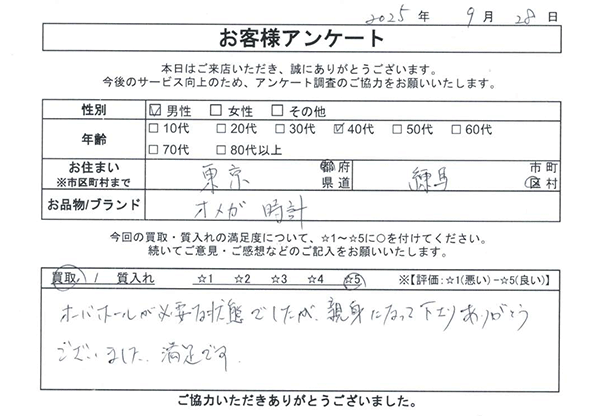 2025年 9月 28日
お客様アンケート
本日はご来店いただき、誠にありがとうございます。
今後のサービス向上のため、アンケート調査のご協力をお願いいたします。
性別 ☑男性 □女性 □その他
年齢 □10代 □20代 □30代 ☑40代 □50代 □60代
□70代 □80代以上
お住まい ※市区町村まで 東京 都府県道 練馬 市町区村
お品物/ブランド オメガ 時計
今回の買取・質入れの満足度について、☆1～☆5に○を付けてください。
続いてご意見・ご感想などのご記入をお願いいたします。
買取 / 質入れ ☆1 ☆2 ☆3 ☆4 ☆5 ※【評価:☆1(悪い)−☆5(良い)】
オーバーホールが必要な状態でしたが、親身になって下さりありがとう
ございました、満足です。
ご協力いただきありがとうございました。